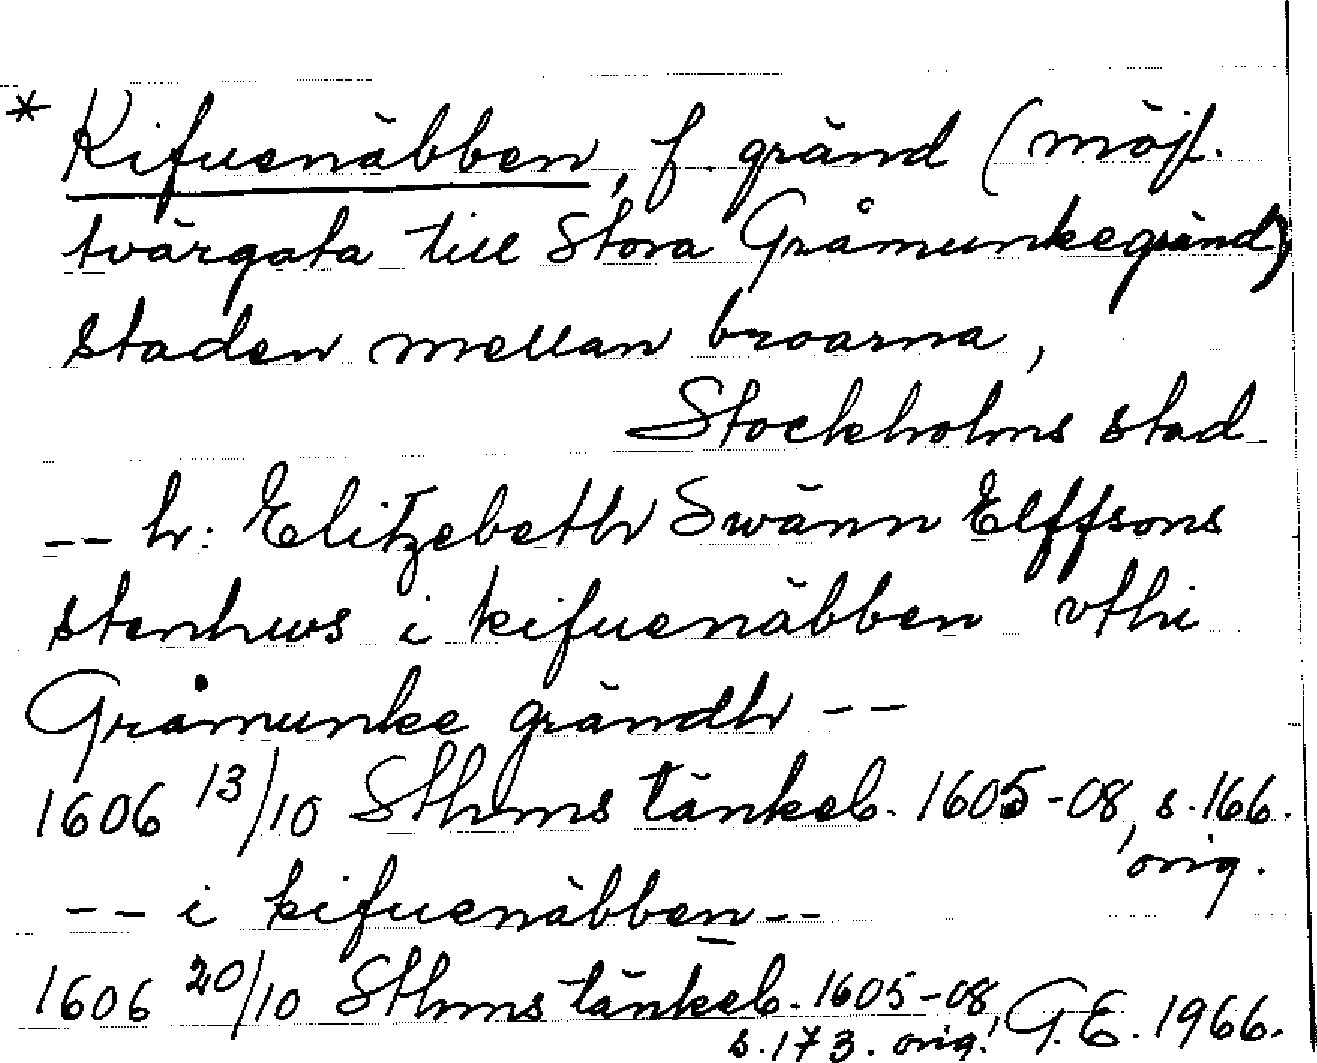 * Kifuenäbben, f. gränd (möjl.
tvärgata till Stora Gråmunkegränd)
staden mellan broarna,
Stockholms stad
-- hr: Elitzebeth Swänn Elffsons
stenhws i kifuenäbben vthi
Gråmunke grändh --
1606 13/10 Sthms tänkeb. 1605-08, s. 166.
orig.
-- i kifuenäbben --
1606 20/10 Sthms tänkeb. 1605-08,
s. 173. orig. G.E. 1966.